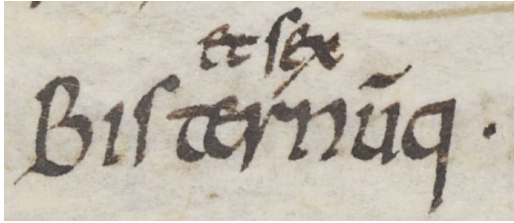 et sex
Bis ter nūq.